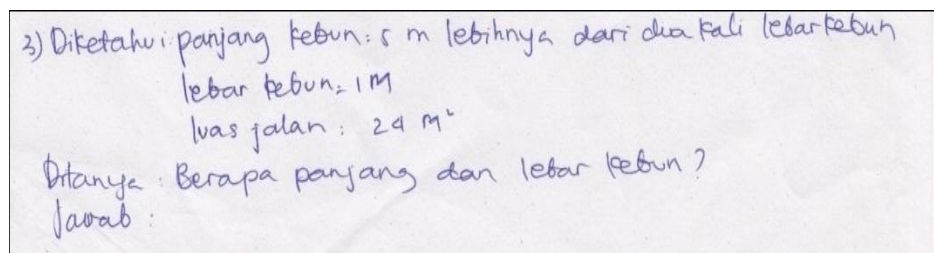 3) Diketahui: panjang kebun: 5 m lebihnya dari dua kali lebar kebun
lebar kebun: 1 M
luas jalan : 24 m²
Ditanya : Berapa panjang dan lebar kebun?
Jawab :